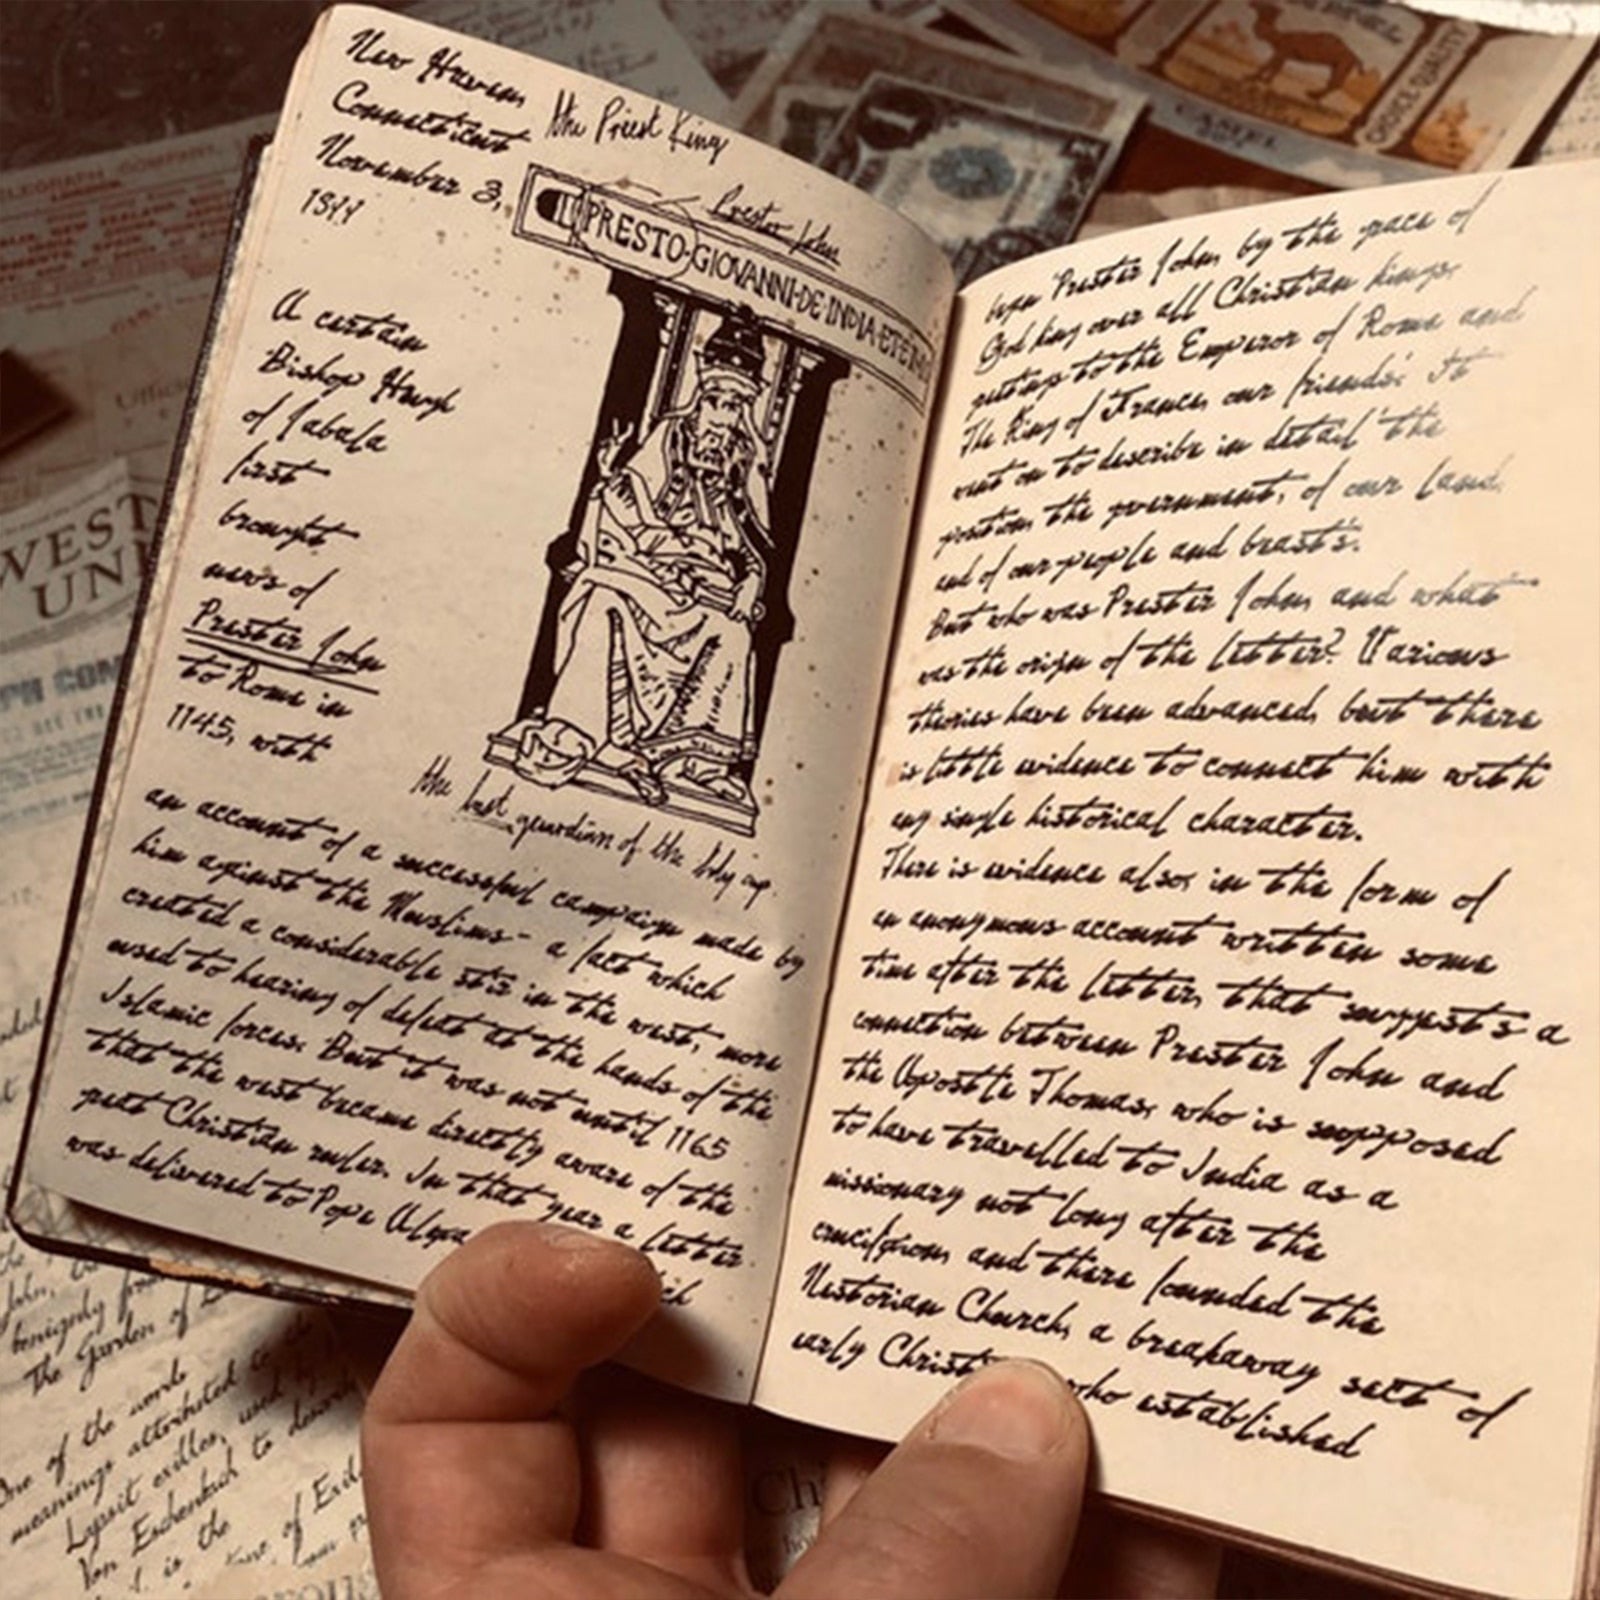 New Haven,
Connecticut
November 3,
the Priest King
Prestor John
PRESTO·GIOVANNI·DE·INDIA·ET·E
A certain
Bishop Hugh
of Jabala
first
brought
news of
Prester John
to Rome in
1145, with
the last guardian of the holy cup.
an account of a successful campaign made by
him against the Muslims - a fact which
created a considerable stir in the west, more
used to hearing of defeat at the hands of the
Islamic forces. But it was not until 1165
that the west became directly aware of the
great Christian ruler. In that year a letter
was delivered to Pope
began 'Prester John, by the grace of
God king over all Christian kings,
greetings to the Emperor of Rome and
The King of France, our friends.' It
went on to describe in detail 'the
position, the government, of our land,
and of our people and beasts'.
But who was Prester John, and what
was the origin of the letter? Various
theories have been advanced, but there
is little evidence to connect him with
any single historical character.
There is evidence also, in the form of
an anonymous account written some
time after the letter, that suggests a
connection between Prester John and
the Apostle Thomas, who is supposed
to have travelled to India as a
missionary not long after the
crucifixion, and there founded the
Nestorian Church, a breakaway sect of
early who established
WEST
UNI
TELEGRAPH COMPANY
CHOICE QUALITY
CAMEL
benignly
The Garden of
One of the words
meanings attributed to
Lapsit exilles, used by
Von Eschenbach to
is the